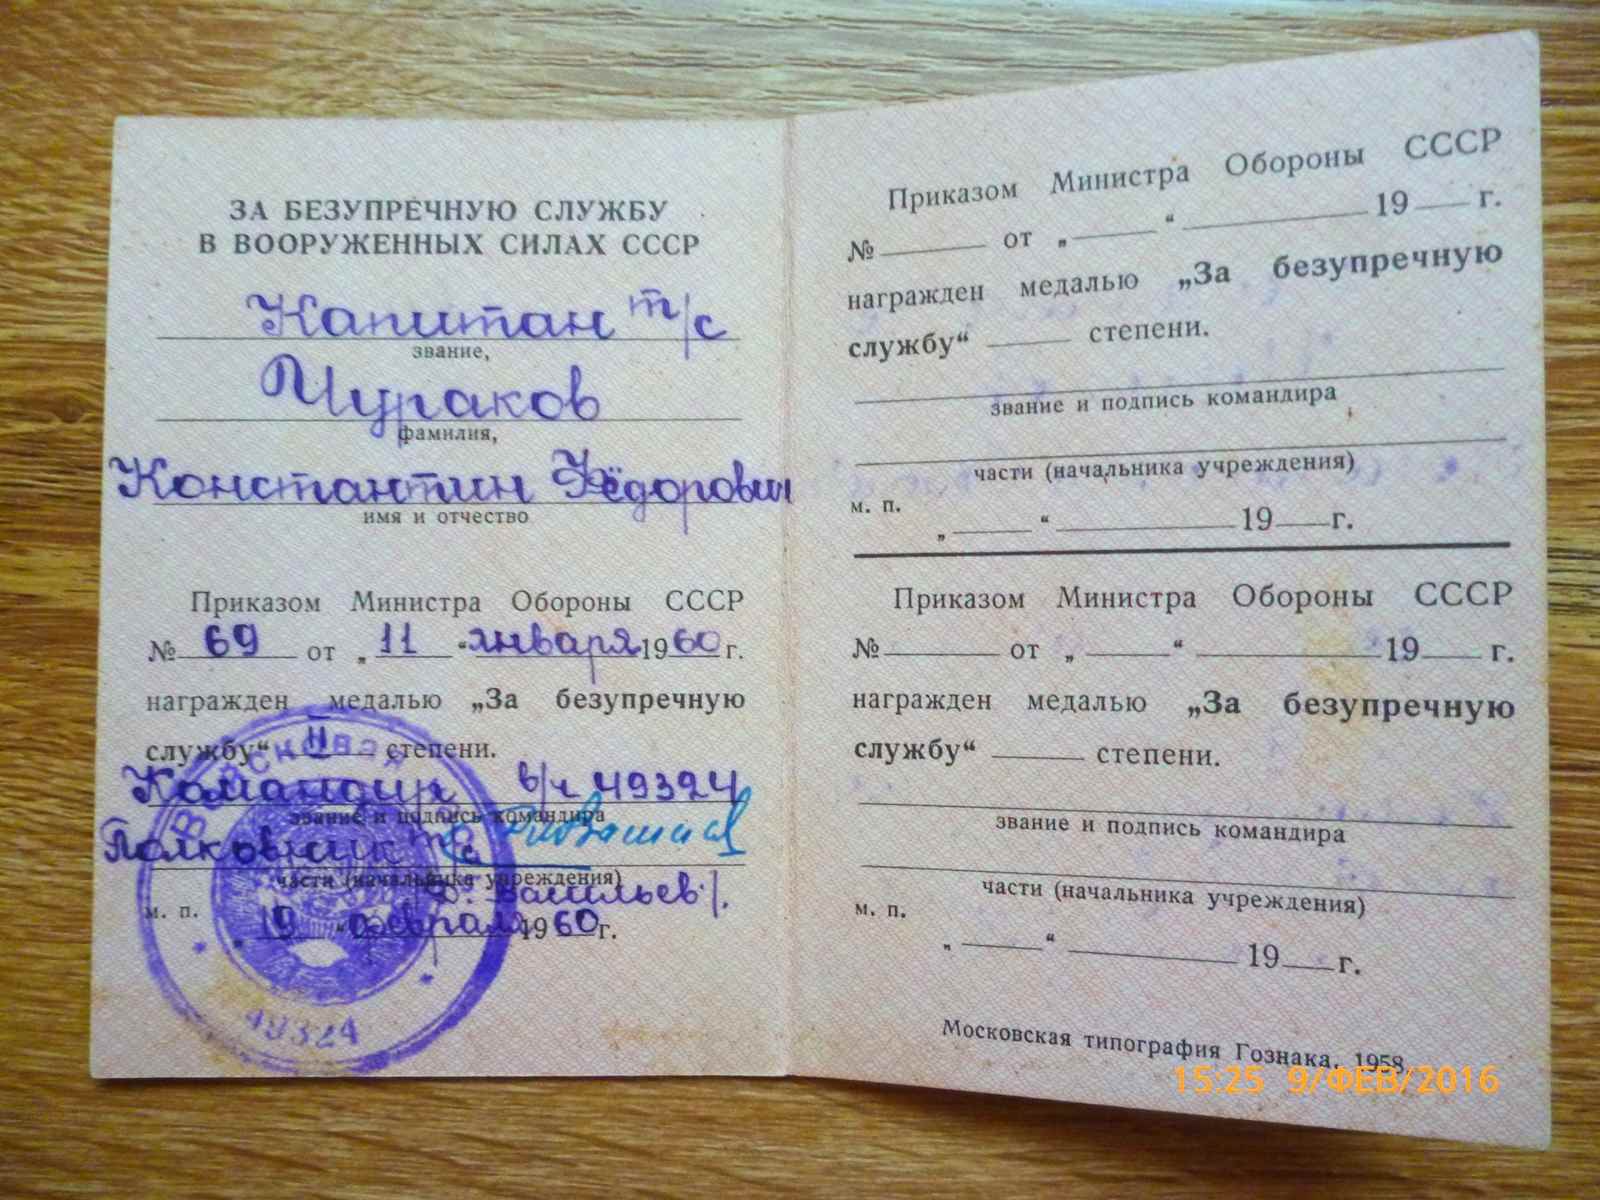 ЗА БЕЗУПРЕЧНУЮ СЛУЖБУ
В ВООРУЖЕННЫХ СИЛАХ СССР
Капитан т/с
звание,
Чураков
фамилия,
Константин Фёдорович
имя и отчество
Приказом Министра Обороны СССР
№ 69 от „11“ января 1960 г.
награжден медалью „За безупречную
службу“ II степени.
Командир в/ч 49324
звание и подпись командира
Полковник т/с
части (начальника учреждения)
Васильев/.
м. п.
„19“ февраля 1960 г.
Войсковая
49324
Приказом Министра Обороны СССР
№ от „ “ 19 г.
награжден медалью „За безупречную
службу“ степени.
звание и подпись командира
части (начальника учреждения)
м. п.
„ “ 19 г.
Приказом Министра Обороны СССР
№ от „ “ 19 г.
награжден медалью „За безупречную
службу“ степени.
звание и подпись командира
части (начальника учреждения)
м. п.
„ “ 19 г.
Московская типография Гознака. 1958.
15:25 9/ФЕВ/2016